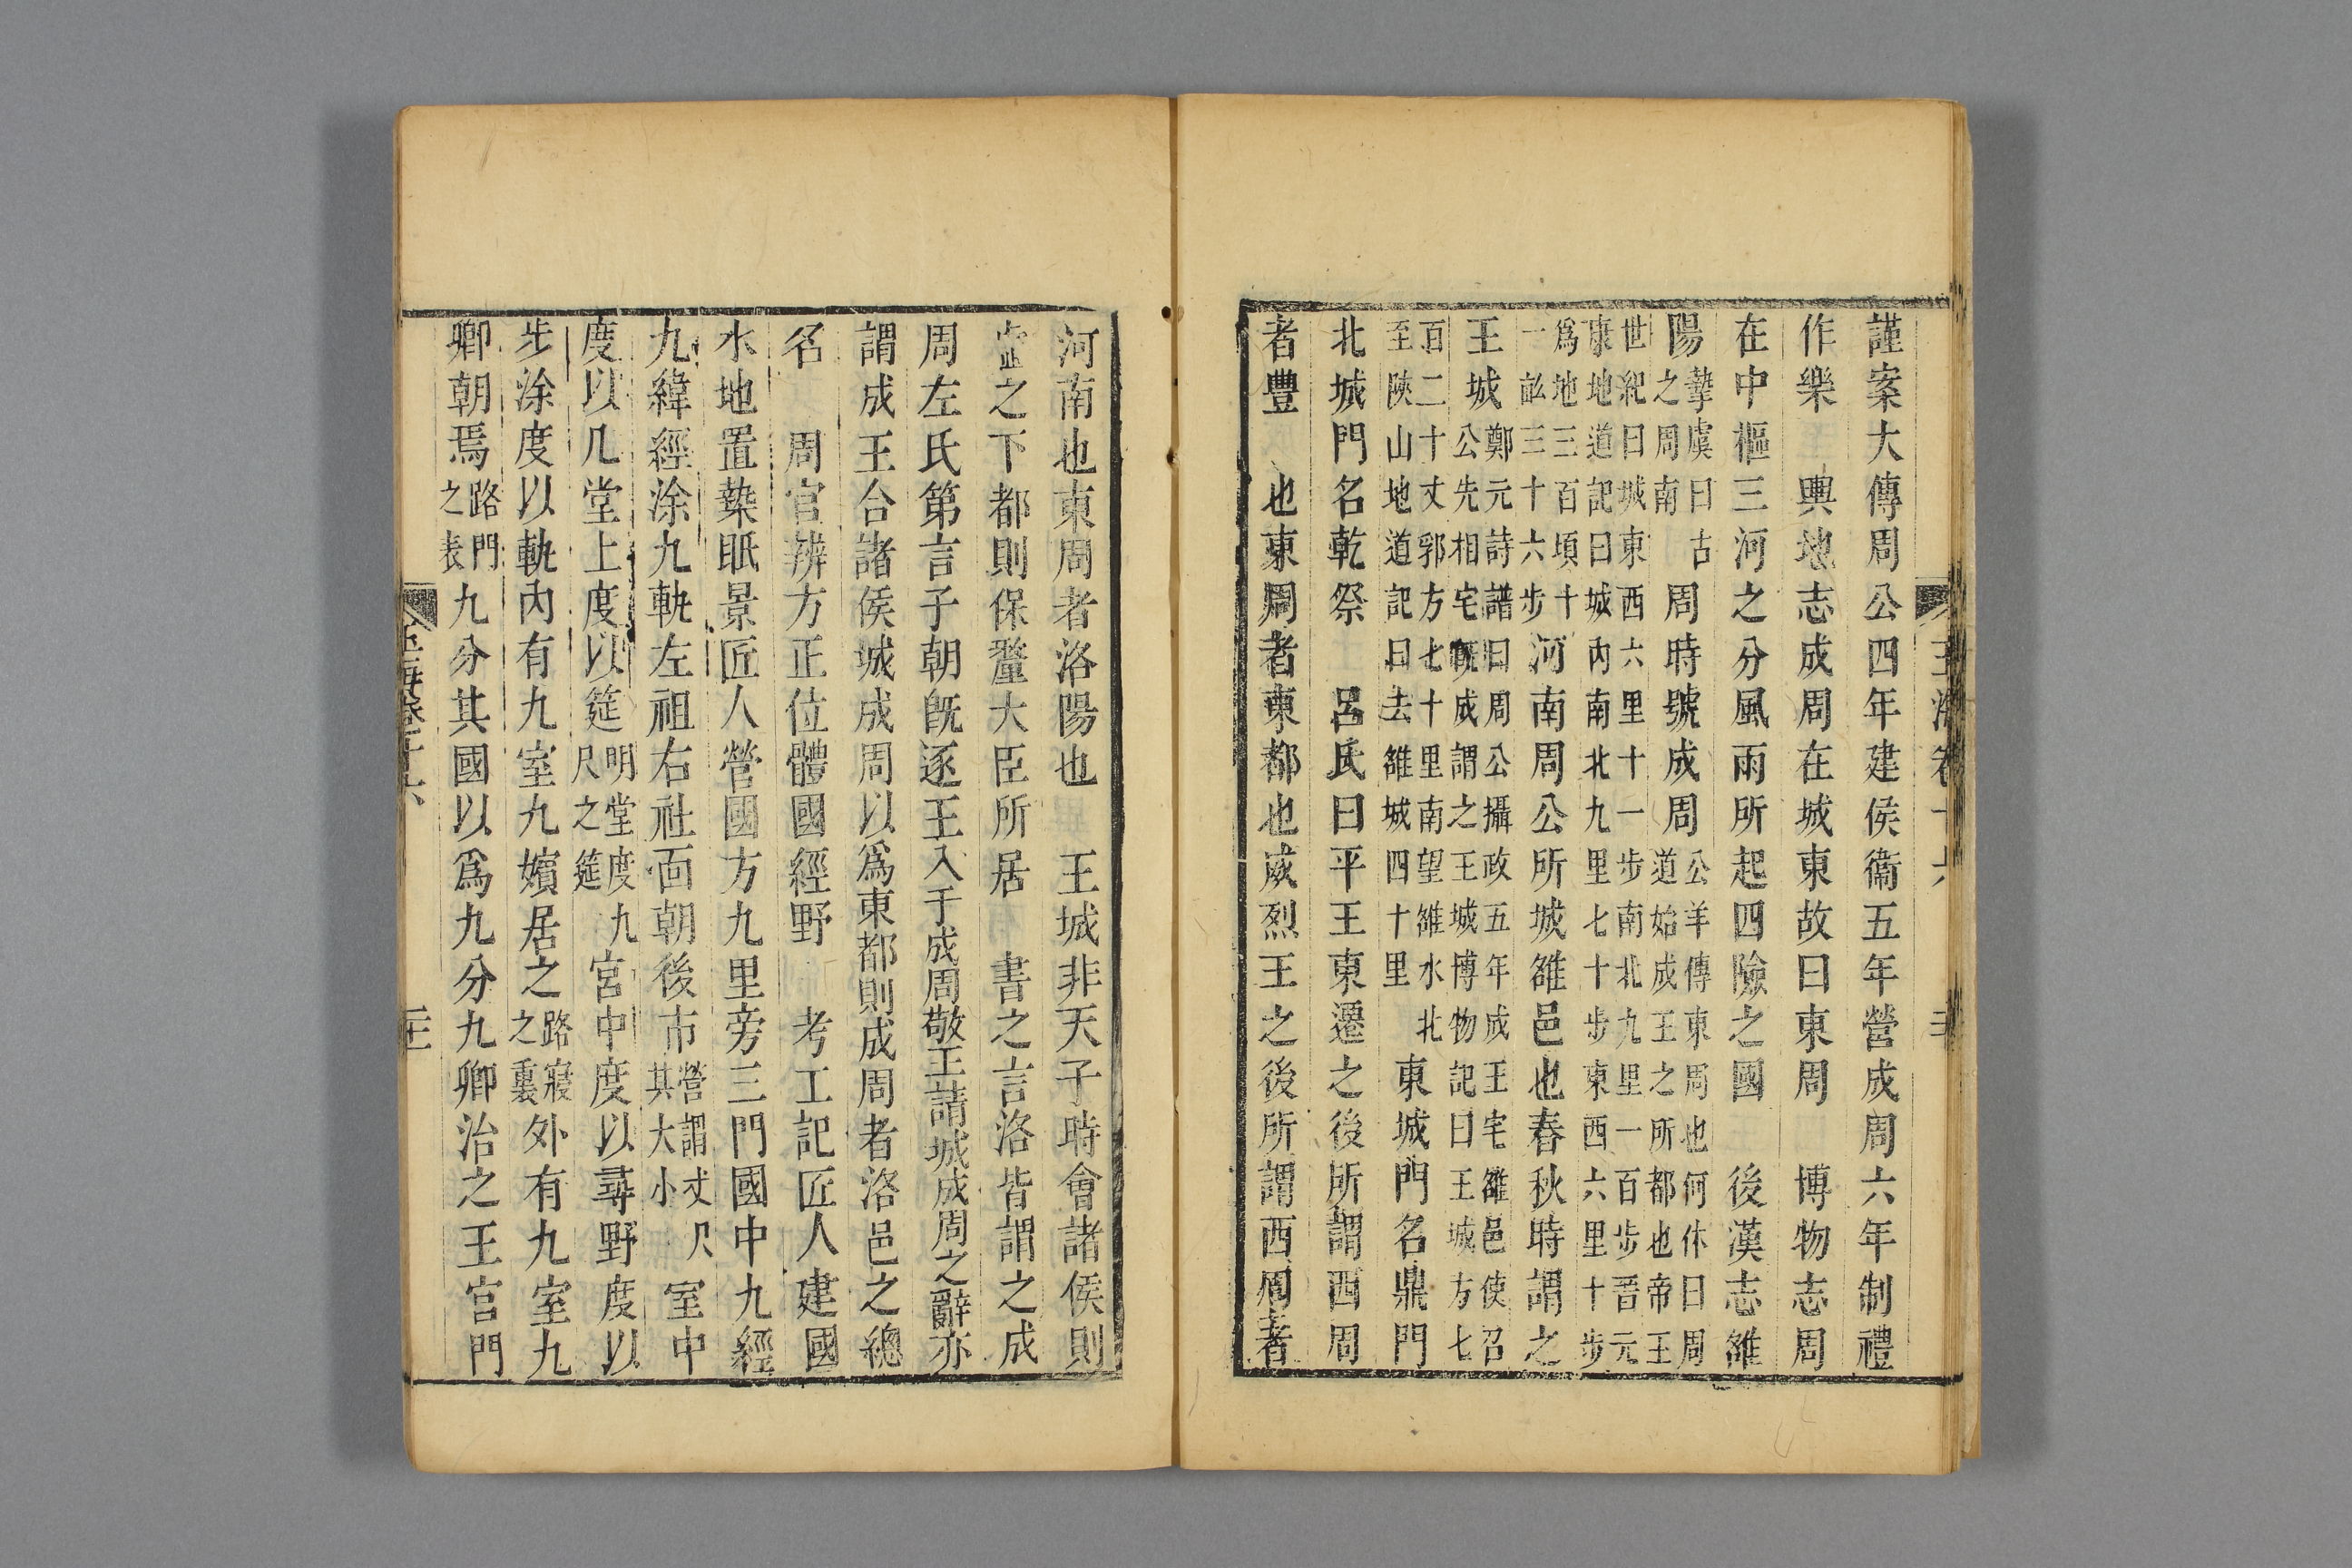 玉海卷十六
謹案大傳周公四年建侯衞五年營成周六年制禮
作樂　輿地志成周在城東故曰東周　博物志周
在中樞三河之分風雨所起四險之國　後漢志雒
陽
摯虞曰古
之周南
周時號成周
公羊傳東周也何休曰周
道始成王之所都也帝王
世紀曰城東西六里十一步南北九里一百步晉元
康地道記曰城內南北九里七十步東西六里十步
爲地三百頃十
一畝三十六步
河南周公所城雒邑也春秋時謂之
王城
鄭元詩譜曰周公攝政五年成王宅雒邑使召
公先相宅旣成謂之王城博物記曰王城方七
百二十丈郛方七十里南望雒水北
至陝山地道記曰去雒城四十里
東城門名鼎門
北城門名乾祭　呂氏曰平王東遷之後所謂西周
者豐　也東周者東都也威烈王之後所謂西周者
河南也東周者洛陽也　王城非天子時會諸侯則
虛之下都則保釐大臣所居　書之言洛皆謂之成
周左氏第言子朝旣逐王入于成周敬王請城成周之辭亦
謂成王合諸侯城成周以爲東都則成周者洛邑之總
名　周官辨方正位體國經野　考工記匠人建國
水地置槷眡景匠人營國方九里旁三門國中九經
九緯經涂九軌左祖右社面朝後市
營謂丈尺
其大小
室中
度以几堂上度以筵
明堂度九
尺之筵
宮中度以尋野度以
步涂度以軌內有九室九嬪居之
路寢
之裏
外有九室九
卿朝焉
路門
之表
九分其國以爲九分九卿治之王宮門
玉海卷十六